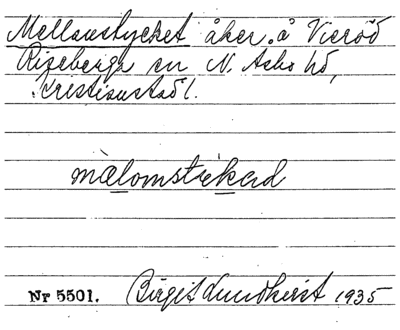 Mellanstycket åker å Vieröd
Riseberga sn N. Åsbo hd,
Kristianstads l.
mælomstikað
Nr 5501. Birgit Lundkvist 1935